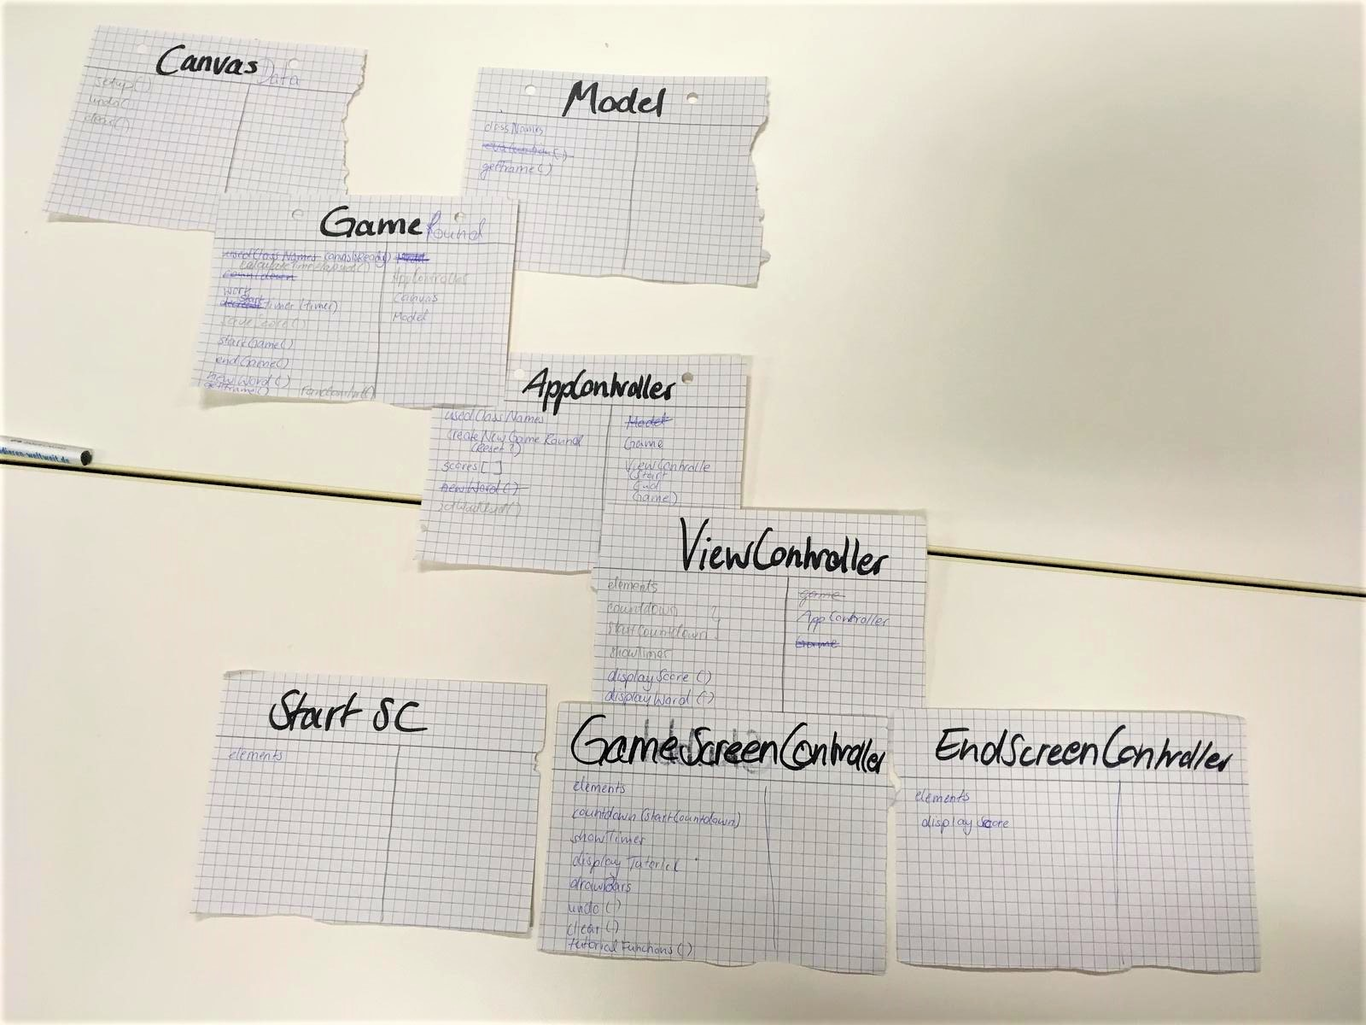 Canvas Data
setup()
undo()
clear()
Model
classNames
getFrame()
Game Round
used Class Names
countdown
work
Timer (timer)
startGame()
endGame()
newWord()
AppController
Canvas
Model
AppController
used Class Names
create New Game Round
(Reset?)
scores[]
newWord()
Model
Game
ViewControlle
Start
End
Game)
ViewController
elements
countdown ?
startCountdown
showTimer
displayScore()
displayWord()
game
AppController
Game
Start SC
elements
GameScreenController
elements
countdown (startCountdown)
showTimer
display Tutorial
drawBars
undo()
clear()
tutorial Functions()
EndScreenController
elements
display Score
dieren-weltweit.de